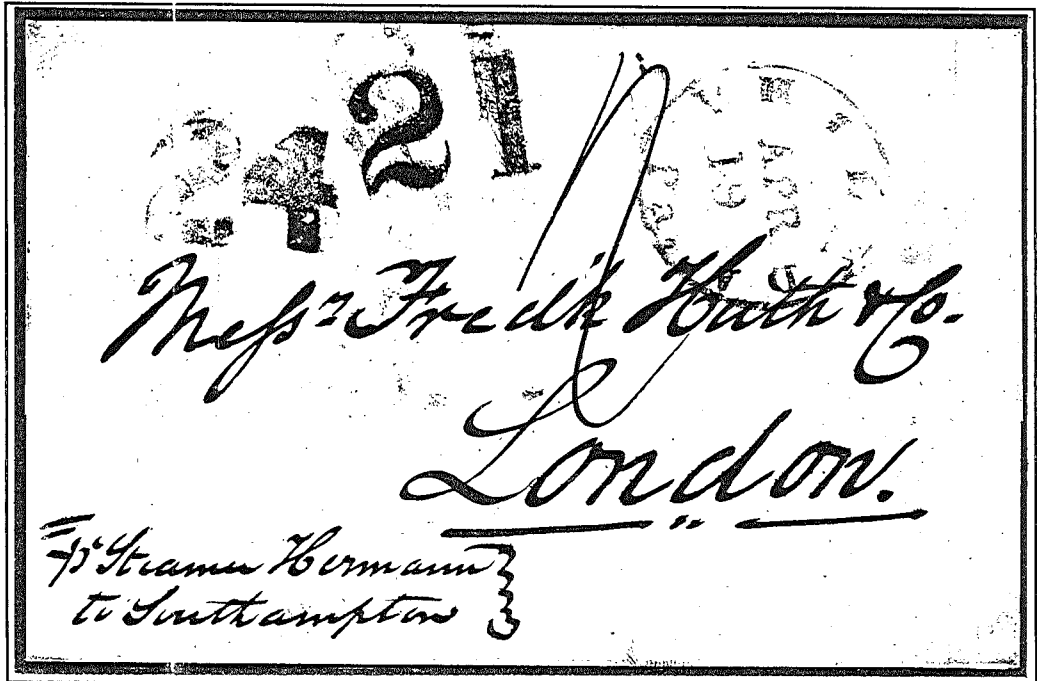 24 2 21
APR
19
Messrs Fredk Huth & Co.
London.
pr Steamer Hermann
to Southampton